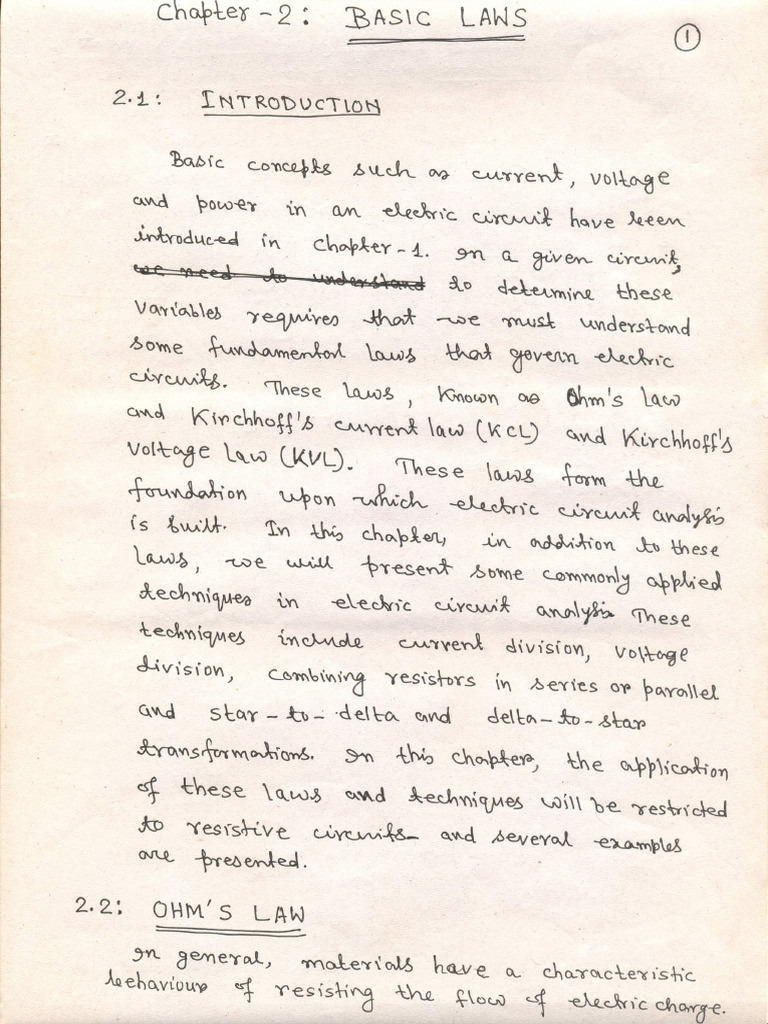 Chapter-2: BASIC LAWS
1
2.1: INTRODUCTION
Basic concepts such as current, voltage
and power in an electric circuit have been
introduced in Chapter-1. In a given circuit,
we need to understand to determine these
variables requires that we must understand
some fundamental laws that govern electric
circuits. These laws, known as Ohm's law
and Kirchhoff's current law (KCL) and Kirchhoff's
voltage law (KVL). These laws form the
foundation upon which electric circuit analysis
is built. In this chapter, in addition to these
laws, we will present some commonly applied
techniques in electric circuit analysis These
techniques include current division, voltage
division, combining resistors in series or parallel
and star-to-delta and delta-to-star
transformations. In this chapter, the application
of these laws and techniques will be restricted
to resistive circuits- and several examples
are presented.
2.2: OHM'S LAW
In general, materials have a characteristic
behaviour of resisting the flow of electric charge.